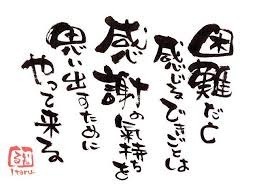 困難だと
感じるできごとは
感謝の気持ちを
思い出すために
やって来る
Itaru